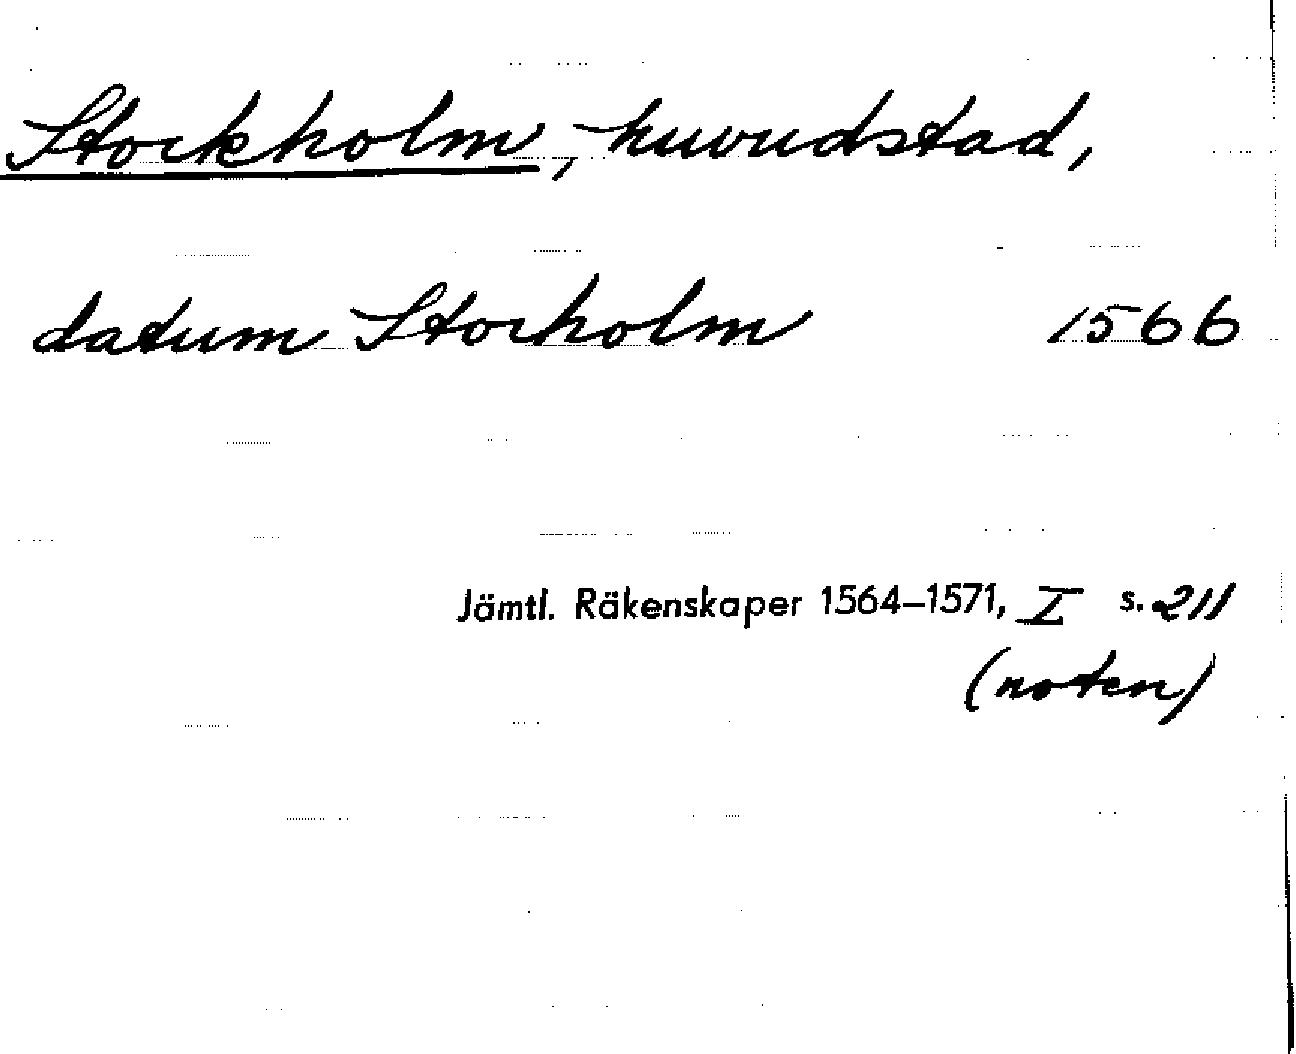 Stockholm, huvudstad,
datum Stocholm 1566
Jämtl. Räkenskaper 1564–1571, I s. 211
(noten)